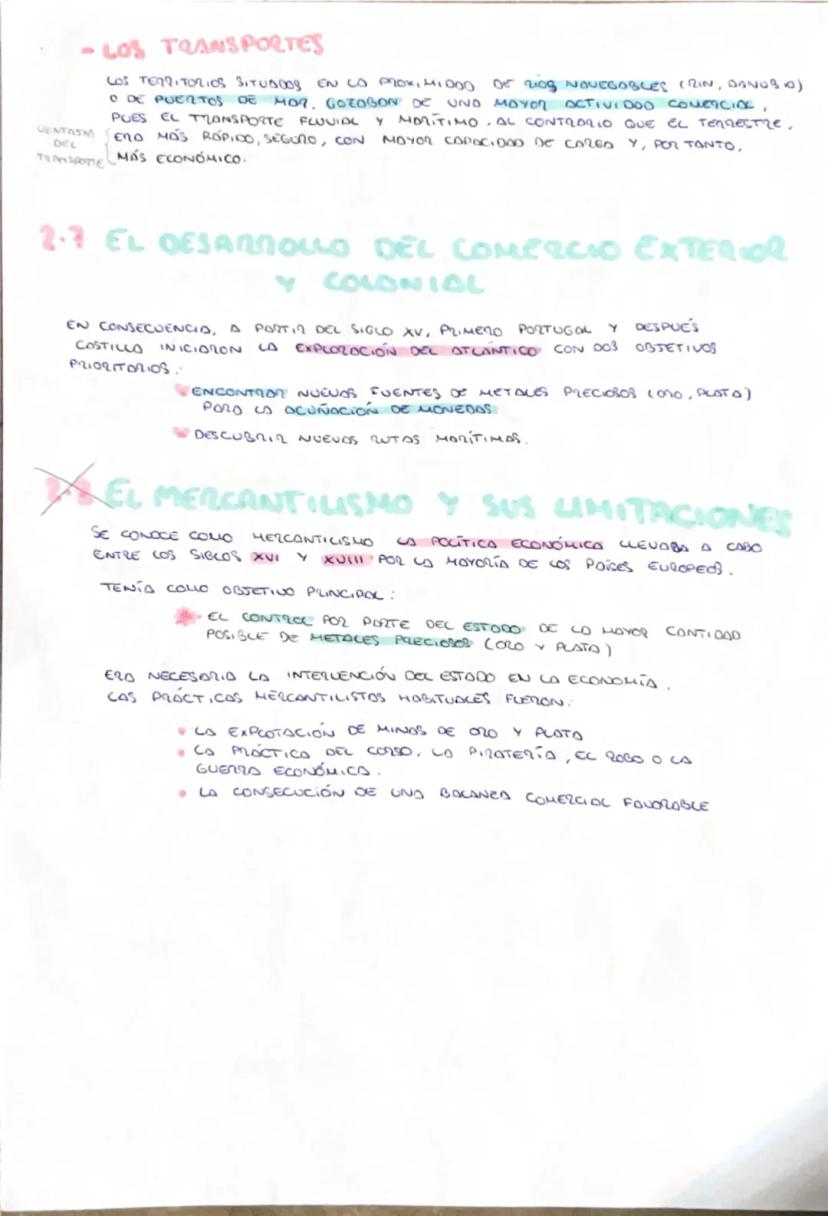 - LOS TRANSPORTES
LOS TERRITORIOS SITUADOS EN LA PROXIMIDAD DE RÍOS NAVEGABLES (RIN, DANUBIO)
O DE PUERTOS DE MAR, GOZABAN DE UNA MAYOR ACTIVIDAD COMERCIAL,
PUES EL TRANSPORTE FLUVIAL Y MARÍTIMO, AL CONTRARIO QUE EL TERRESTRE,
ERA MÁS RÁPIDO, SEGURO, CON MAYOR CAPACIDAD DE CARGA Y, POR TANTO,
MÁS ECONÓMICO.
VENTAJAS
DEL
TRANSPORTE
2.7 EL DESARROLLO DEL COMERCIO EXTERIOR
Y COLONIAL
EN CONSECUENCIA, A PARTIR DEL SIGLO XV, PRIMERO PORTUGAL Y DESPUÉS
CASTILLA INICIARON LA EXPLORACIÓN DEL ATLÁNTICO CON DOS OBJETIVOS
PRIORITARIOS:
ENCONTRAR NUEVAS FUENTES DE METALES PRECIOSOS (ORO, PLATA)
PARA LA ACUÑACIÓN DE MONEDAS
DESCUBRIR NUEVAS RUTAS MARÍTIMAS.
2.8 EL MERCANTILISMO Y SUS LIMITACIONES
SE CONOCE COMO MERCANTILISMO LA POLÍTICA ECONÓMICA LLEVADA A CABO
ENTRE LOS SIGLOS XVI Y XVIII POR LA MAYORÍA DE LOS PAÍSES EUROPEOS.
TENÍA COMO OBJETIVO PRINCIPAL:
* EL CONTROL POR PARTE DEL ESTADO DE LA MAYOR CANTIDAD
POSIBLE DE METALES PRECIOSOS (ORO Y PLATA)
ERA NECESARIA LA INTERVENCIÓN DEL ESTADO EN LA ECONOMÍA.
LAS PRÁCTICAS MERCANTILISTAS HABITUALES FUERON:
• LA EXPLOTACIÓN DE MINAS DE ORO Y PLATA
• LA PRÁCTICA DEL CORSO, LA PIRATERÍA, EL ROBO O LA
GUERRA ECONÓMICA.
• LA CONSECUCIÓN DE UNA BALANZA COMERCIAL FAVORABLE